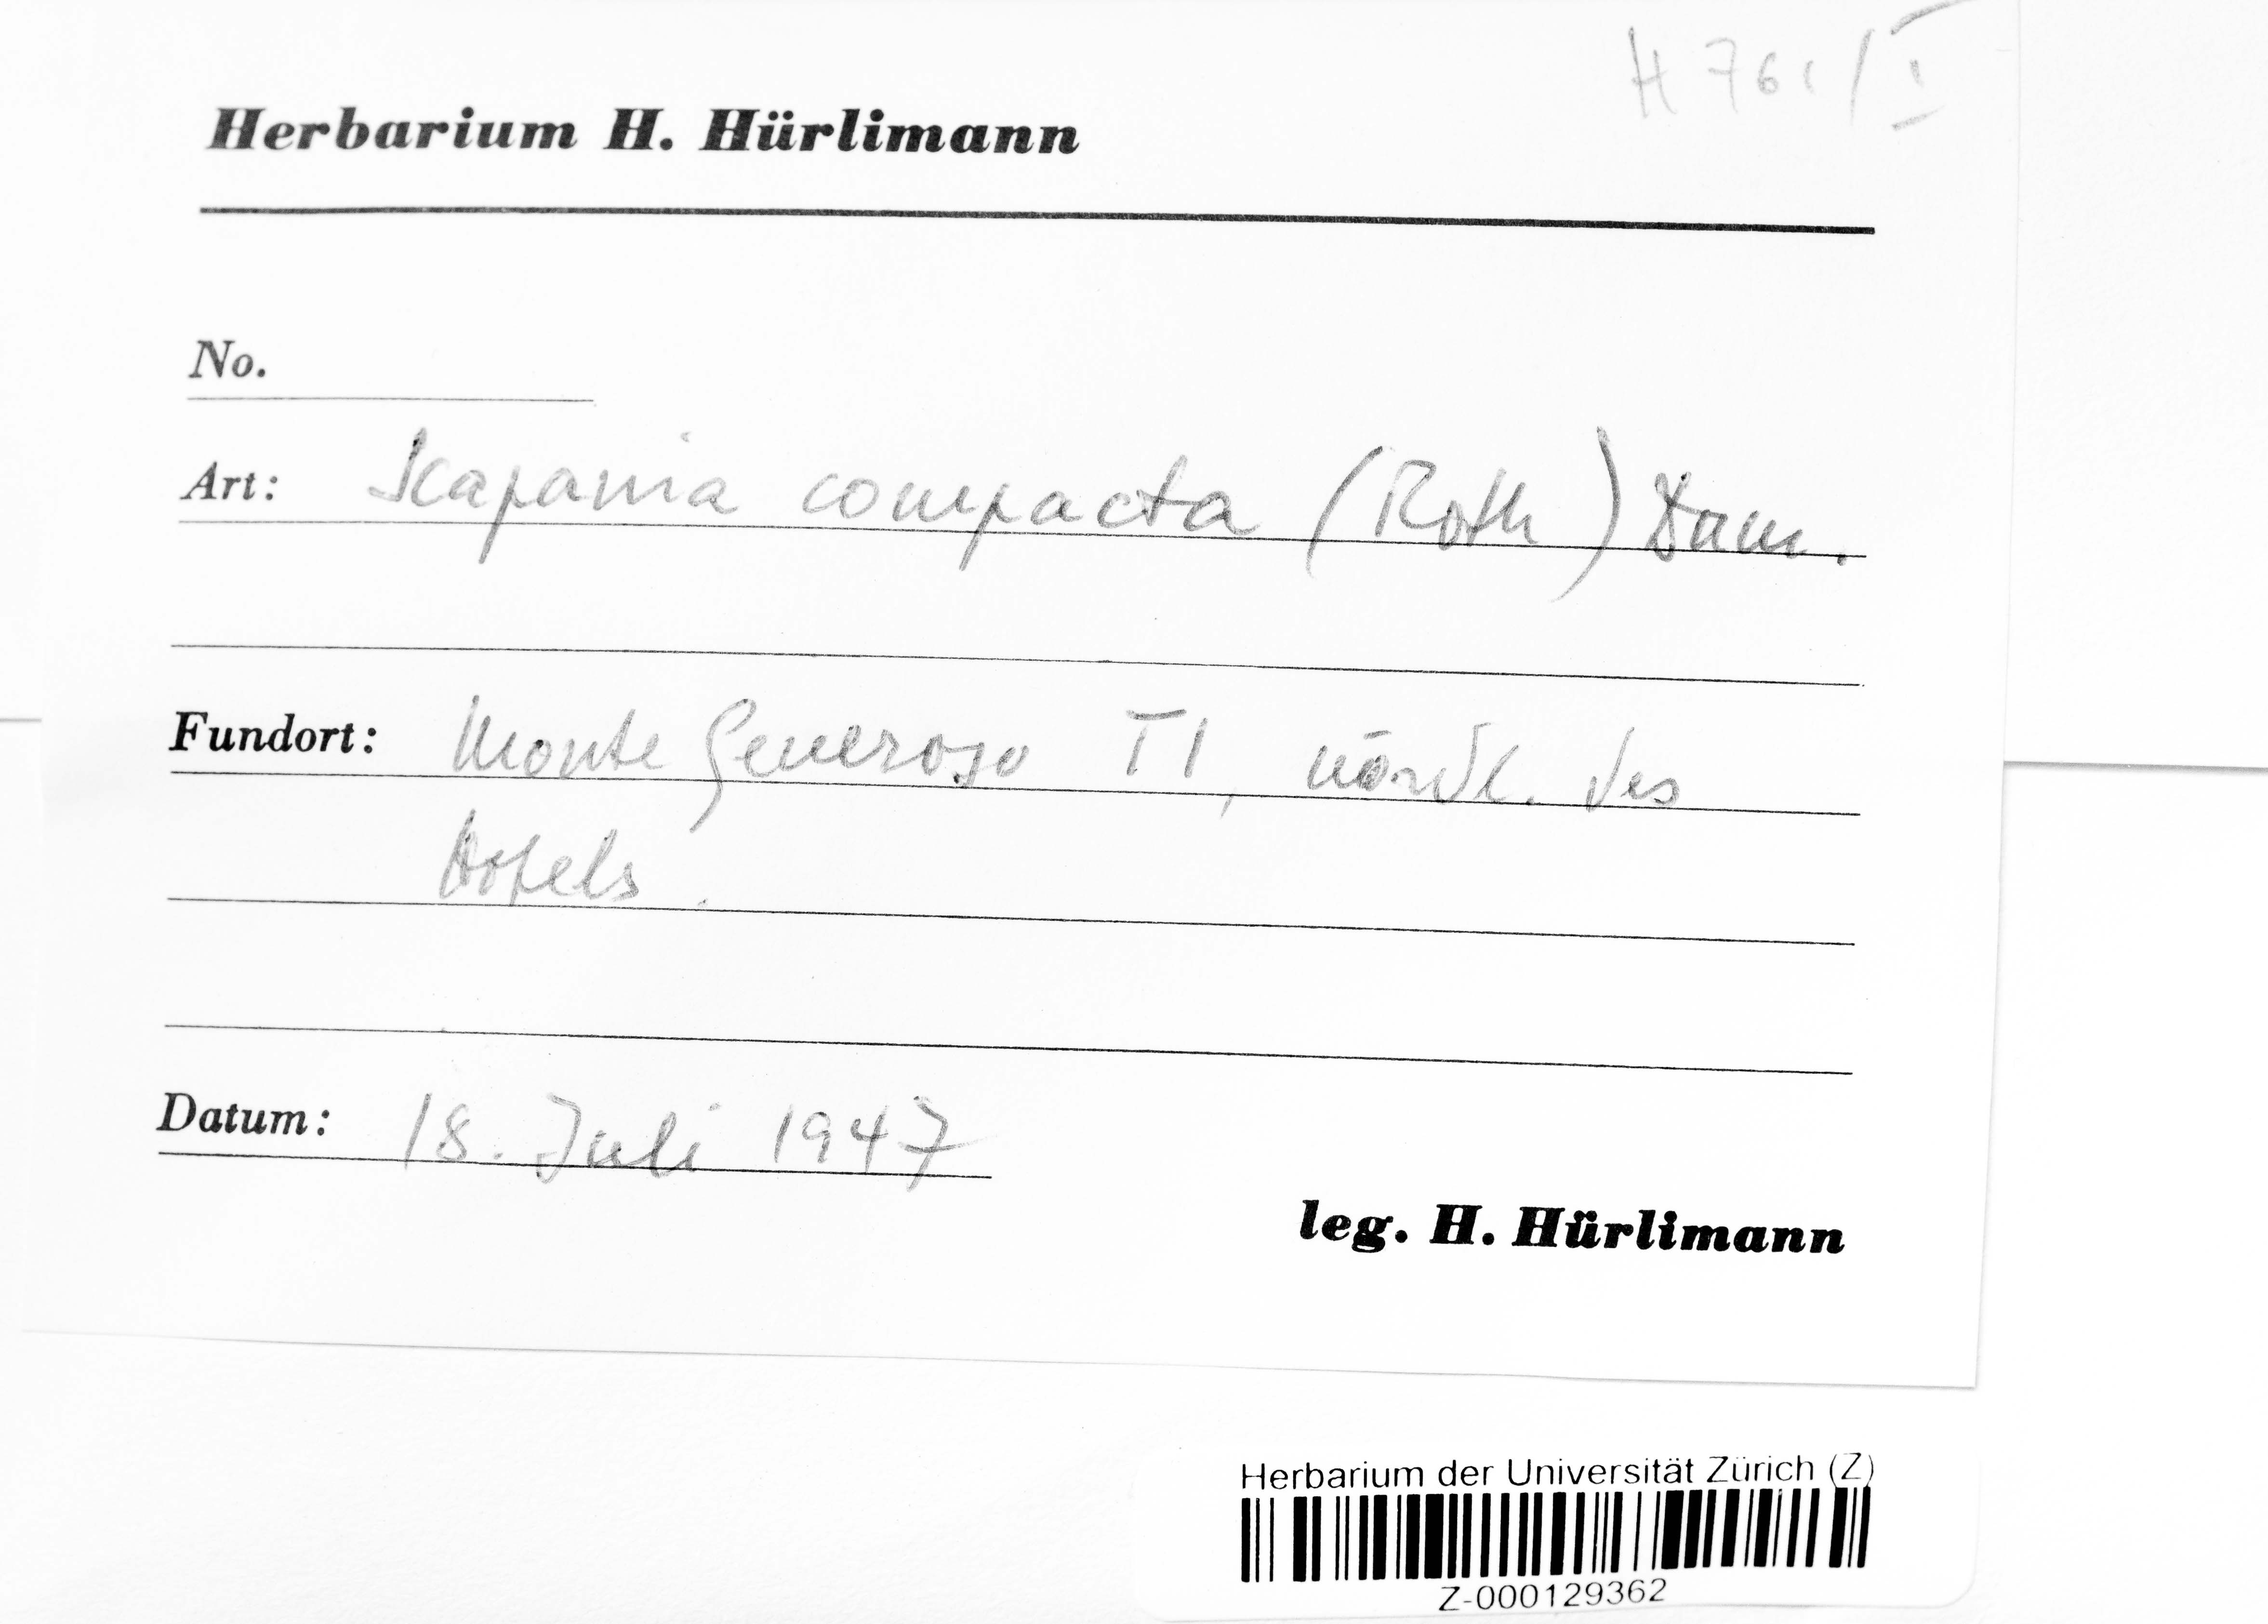 H 761/I
Herbarium H. Hürlimann
No.
Art: Scapania compacta (Roth) Dum.
Fundort: Monte Generoso TI, nördl. des
Hotels.
Datum: 18. Juli 1947
leg. H. Hürlimann
Herbarium der Universität Zürich (Z)
Z-000129362